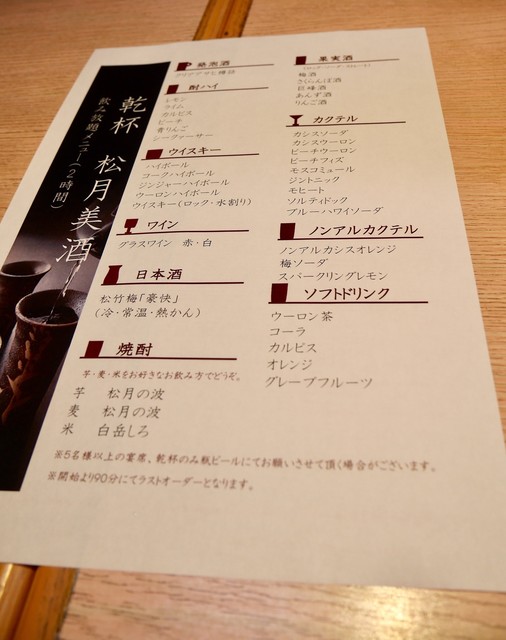 乾杯 松月美酒
飲み放題メニュー(2時間)
発泡酒
クリアアサヒ樽詰
酎ハイ
レモン
ライム
カルピス
ピーチ
青りんご
シークァーサー
ウイスキー
ハイボール
コークハイボール
ジンジャーハイボール
ウーロンハイボール
ウイスキー(ロック・水割り)
ワイン
グラスワイン 赤・白
日本酒
松竹梅「豪快」
(冷・常温・熱かん)
焼酎
芋・麦・米をお好きなお飲み方でどうぞ。
芋 松月の波
麦 松月の波
米 白岳しろ
果実酒
梅酒
さくらんぼ酒
巨峰酒
あんず酒
りんご酒
カクテル
カシスソーダ
カシスウーロン
ピーチウーロン
ピーチフィズ
モスコミュール
ジントニック
モヒート
ソルティドック
ブルーハワイソーダ
ノンアルカクテル
ノンアルカシスオレンジ
梅ソーダ
スパークリングレモン
ソフトドリンク
ウーロン茶
コーラ
カルピス
オレンジ
グレープフルーツ
※5名様以上の宴席、乾杯のみ瓶ビールにてお願いさせて頂く場合がございます。
※開始より90分にてラストオーダーとなります。